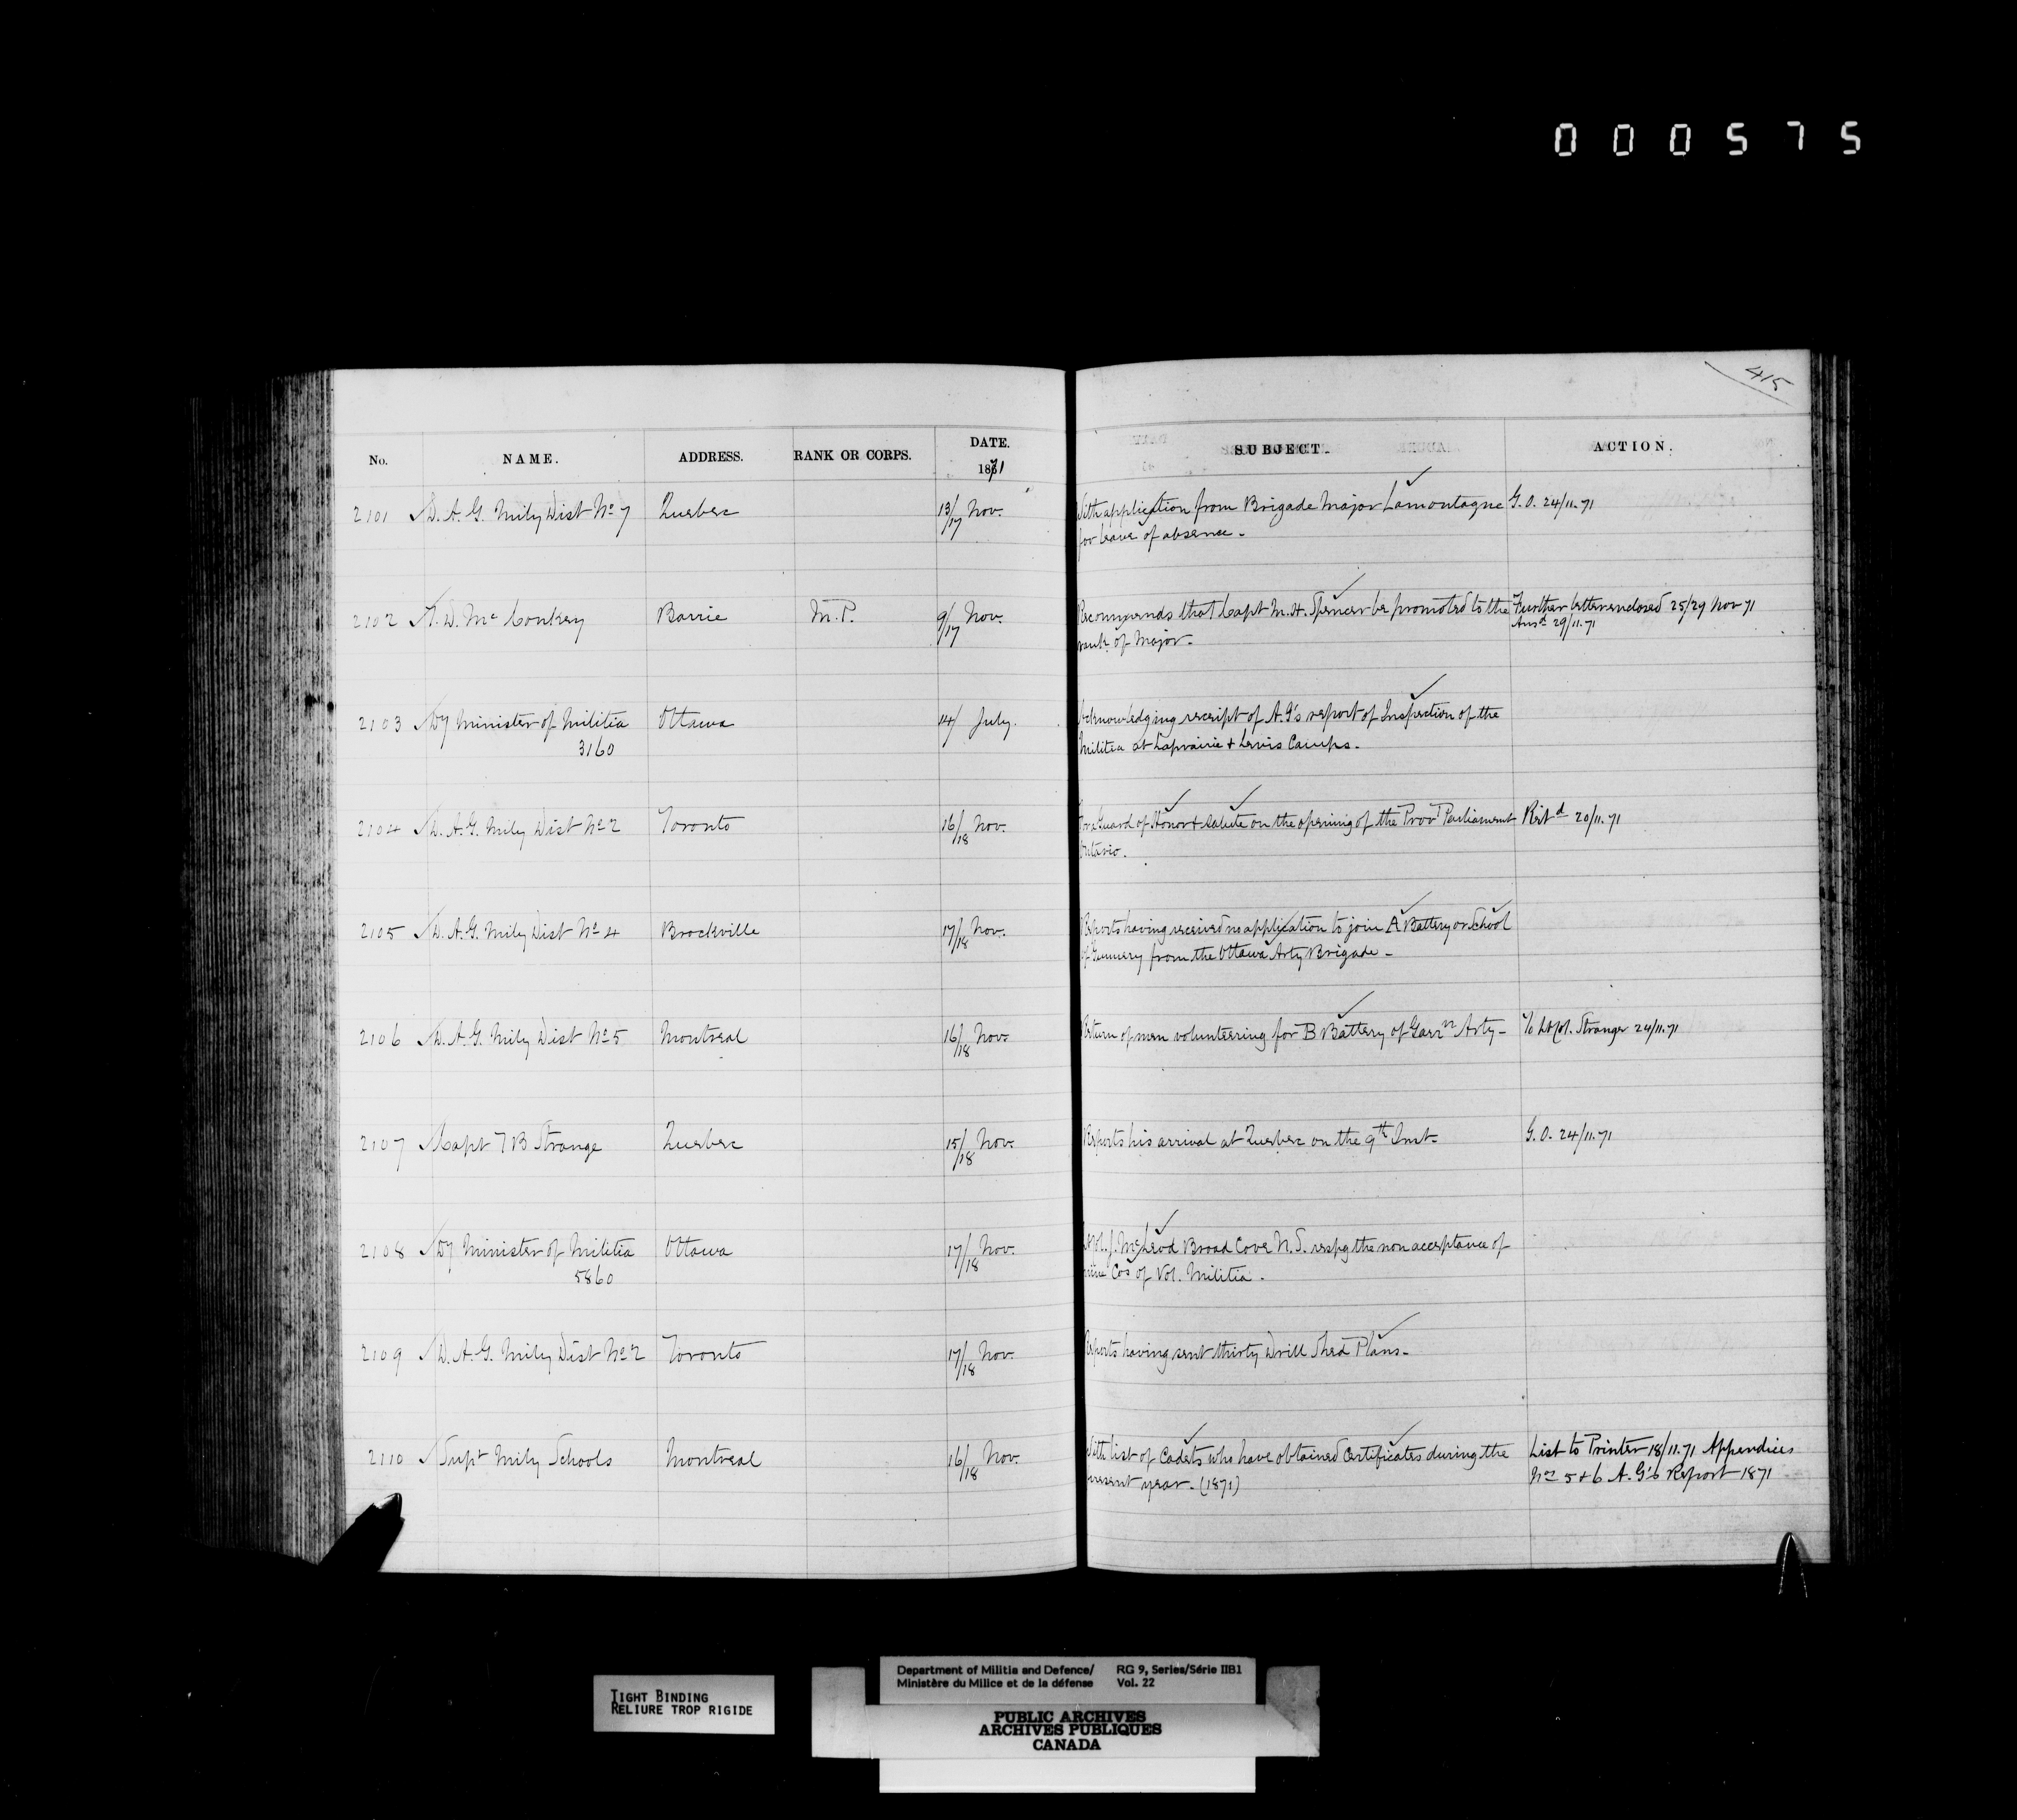 000575
415
No. NAME. ADDRESS. RANK OR CORPS. DATE. 1871 SUBJECT. ACTION.
2101 D. A. G. Mily Dist No 7 Quebec 13/17 Nov. With application from Brigade Major Lamontagne G. O. 24/11.71
for leave of absence.
2102 D. McConkey Barrie M.P. 9/17 Nov. Recommends that Capt M. H. Spencer be promoted to the Further letter enclosed 25/29 Nov 71
rank of Major. Ansd 29/11.71
2103 Dy Minister of Militia Ottawa 14/ July. Acknowledging receipt of A.G's report of Inspection of the
3160 Militia at Laprairie & Levis Camps.
2104 D. A. G. Mily Dist No 2 Toronto 16/18 Nov. For a Guard of Honor & Salute on the opening of the Provl Parliament 20/11.71
Ontario.
2105 D. A. G. Mily Dist No 4 Brockville 17/18 Nov. Reports having received no application to join A Battery or School
of Gunnery from the Ottawa Arty Brigade -
2106 D. A. G. Mily Dist No 5 Montreal 16/18 Nov. Return of men volunteering for B Battery of Garrn Arty - To Lt Col. Strange 24/11.71
2107 Capt T B Strange Quebec 15/18 Nov. Reports his arrival at Quebec on the 9th Inst - G. O. 24/11.71
2108 Dy Minister of Militia Ottawa 17/18 Nov. Lt Col. J. McLeod Broad Cove N. S. respg the non acceptance of
5860 nine Cos of Vol. Militia.
2109 D. A. G. Mily Dist No 2 Toronto 17/18 Nov. Reports having sent thirty Drill Shed Plans -
2110 Supt Mily Schools Montreal 16/18 Nov. With list of Cadets who have obtained Certificates during the List to Printer 18/11.71 Appendices
present year - (1871) Nos 5 & 6 A. G's Report 1871
TIGHT BINDING
RELIURE TROP RIGIDE
Department of Militia and Defence/ RG 9, Series/Série IIB1
Ministère du Milice et de la défense Vol. 22
PUBLIC ARCHIVES
ARCHIVES PUBLIQUES
CANADA